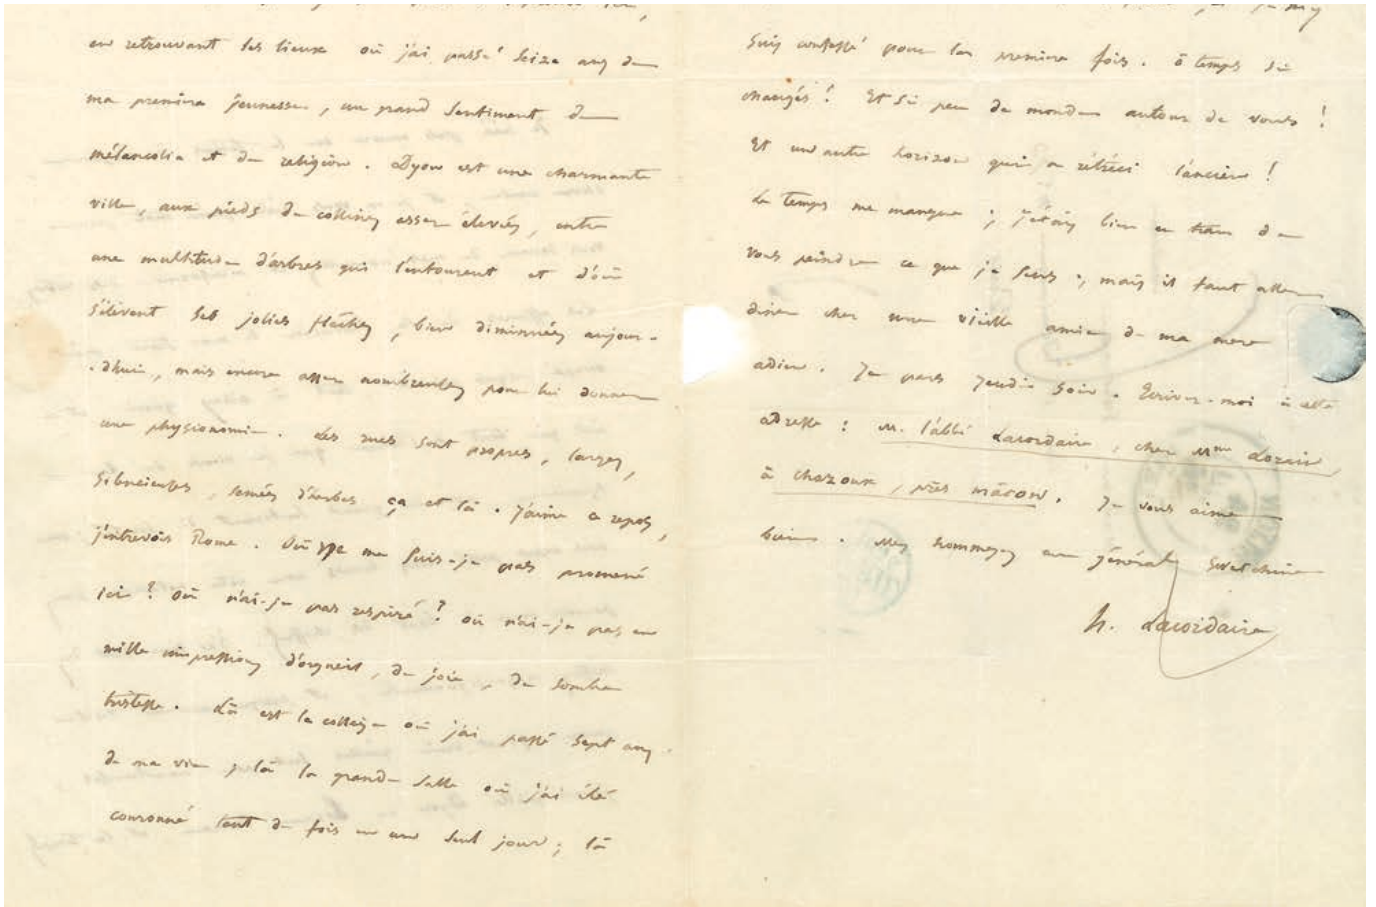 en retrouvant les lieux où j'ai passé seize ans de
ma première jeunesse, un grand sentiment de
mélancolie et de religion. Dijon est une charmante
ville, aux pieds de collines assez élevées, entre
une multitude d'arbres qui l'entourent et d'où
s'élèvent ses jolies flèches, bien diminuées aujour-
d'hui, mais encore assez nombreuses pour lui donner
une physionomie. Les rues sont propres, larges,
silencieuses, semées d'arbres ça et là. J'aime ce repos,
j'entrevois Rome. Où ne me suis-je pas promené
ici ? Où n'ai-je pas respiré ? Où n'ai-je pas eu
mille impressions d'orgueil, de joie, de sombre
tristesse. Là est le collège où j'ai passé sept ans
de ma vie ; là la grande salle où j'ai été
couronné tant de fois en un seul jour ; là
suis confessé pour la première fois. ô temps si
changés ! Et si peu de monde autour de vous !
Et un autre horizon qui a rétréci l'ancien !
Le temps me manque ; j'étais bien en train de
vous peindre ce que je sens ; mais il faut aller
diner chez une vieille amie de ma mère
adieu. Je pars jeudi soir. Ecrivez-moi à cette
adresse : M. l'abbé Lacordaire, chez Mme Lorain
à Chazoux, près Mâcon. Je vous aime
bien. Mes hommages au général Swetchine
h. Lacordaire